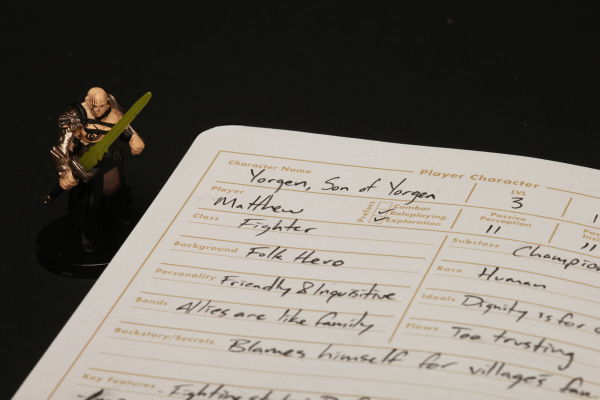 Player Character
Character Name
LVL
Yorgen, Son of Yorgen
3
Player
Matthew
Prefers
Combat
Roleplaying
Exploration
Passive
Perception
11
11
Class
Fighter
Subclass
Background
Folk Hero
Race
Human
Personality
Friendly & Inquisitive
Ideals
Dignity is for
Bonds
Allies are like family
Flaws
Too trusting
Backstory/Secrets
Blames himself for villages
Key Features